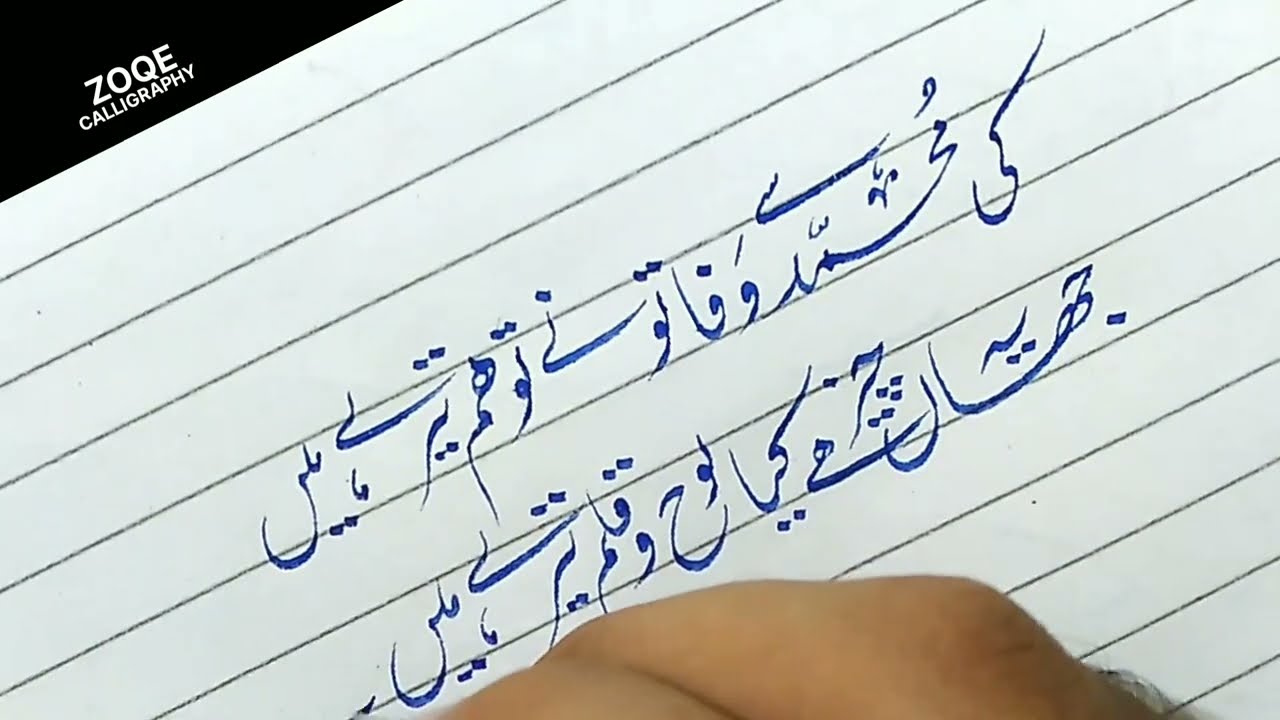 ZOQE
CALLIGRAPHY
کی مُحمّد سے وَفا تو نے تو ھم تیرے ہیں
یہ جھاں چیز ھے کیا لوح و قلم تیرے ہیں